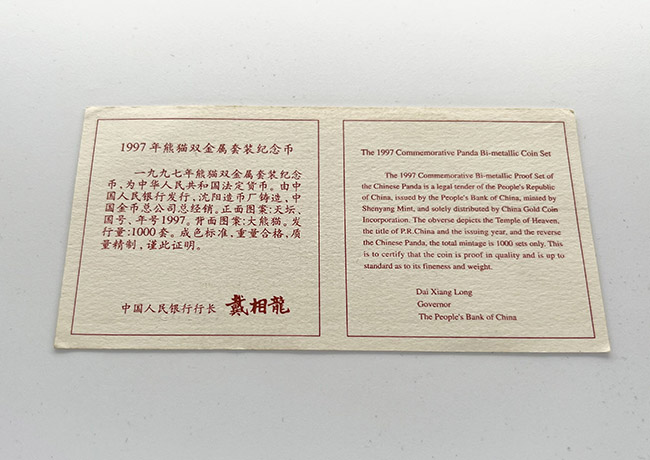 1997年熊猫双金属套装纪念币
一九九七年熊猫双金属套装纪念
币,为中华人民共和国法定货币。由中
国人民银行发行,沈阳造币厂铸造,中
国金币总公司总经销。正面图案:天坛、
国号、年号1997。背面图案:大熊猫。发
行量:1000套。成色标准,重量合格,质
量精制,谨此证明。
中国人民银行行长 戴相龍
The 1997 Commemorative Panda Bi-metallic Coin Set
The 1997 Commemorative Bi-metallic Proof Set of
the Chinese Panda is a legal tender of the People's Republic
of China, issued by the People's Bank of China, minted by
Shenyang Mint, and solely distributed by China Gold Coin
Incorporation. The obverse depicts the Temple of Heaven,
the title of P.R.China and the issuing year, and the reverse
the Chinese Panda, the total mintage is 1000 sets only. This
is to certify that the coin is proof in quality and is up to
standard as to its fineness and weight.
Dai Xiang Long
Governor
The People's Bank of China